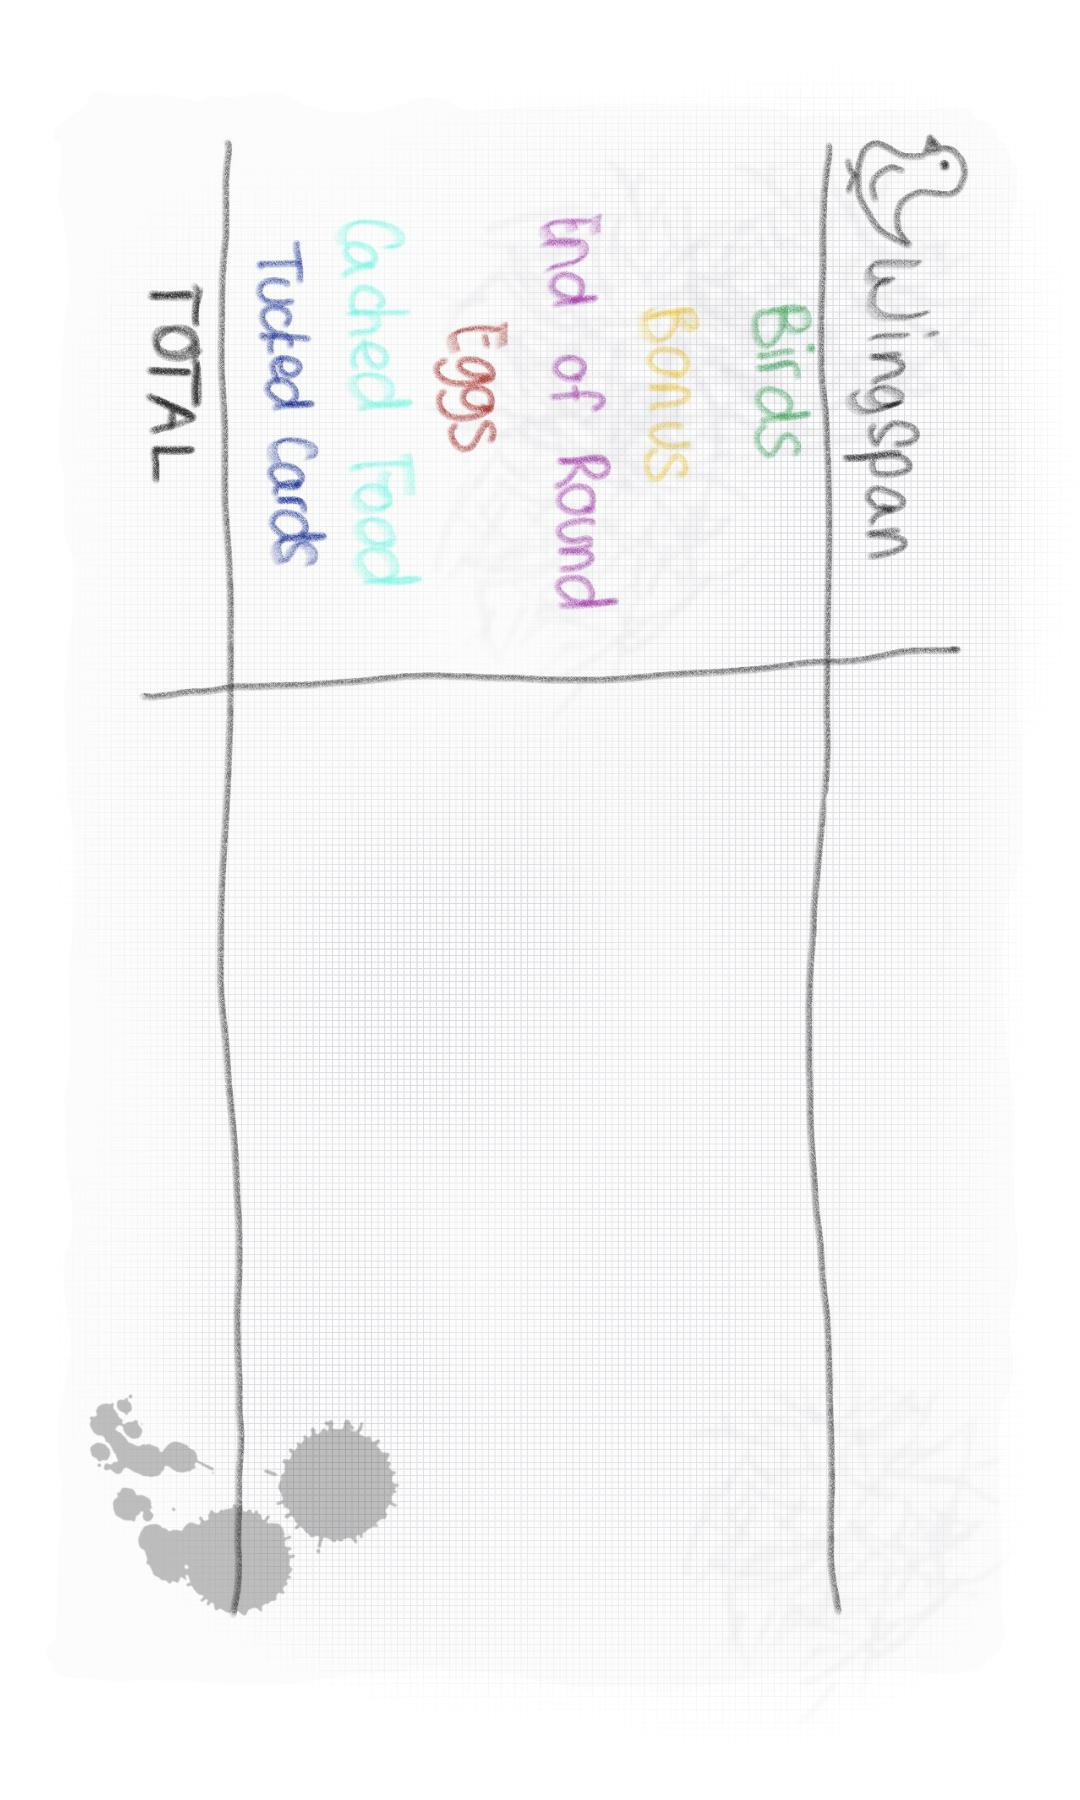 Wingspan
Birds
Bonus
End of Round
Eggs
Cached Food
Tucked Cards
TOTAL